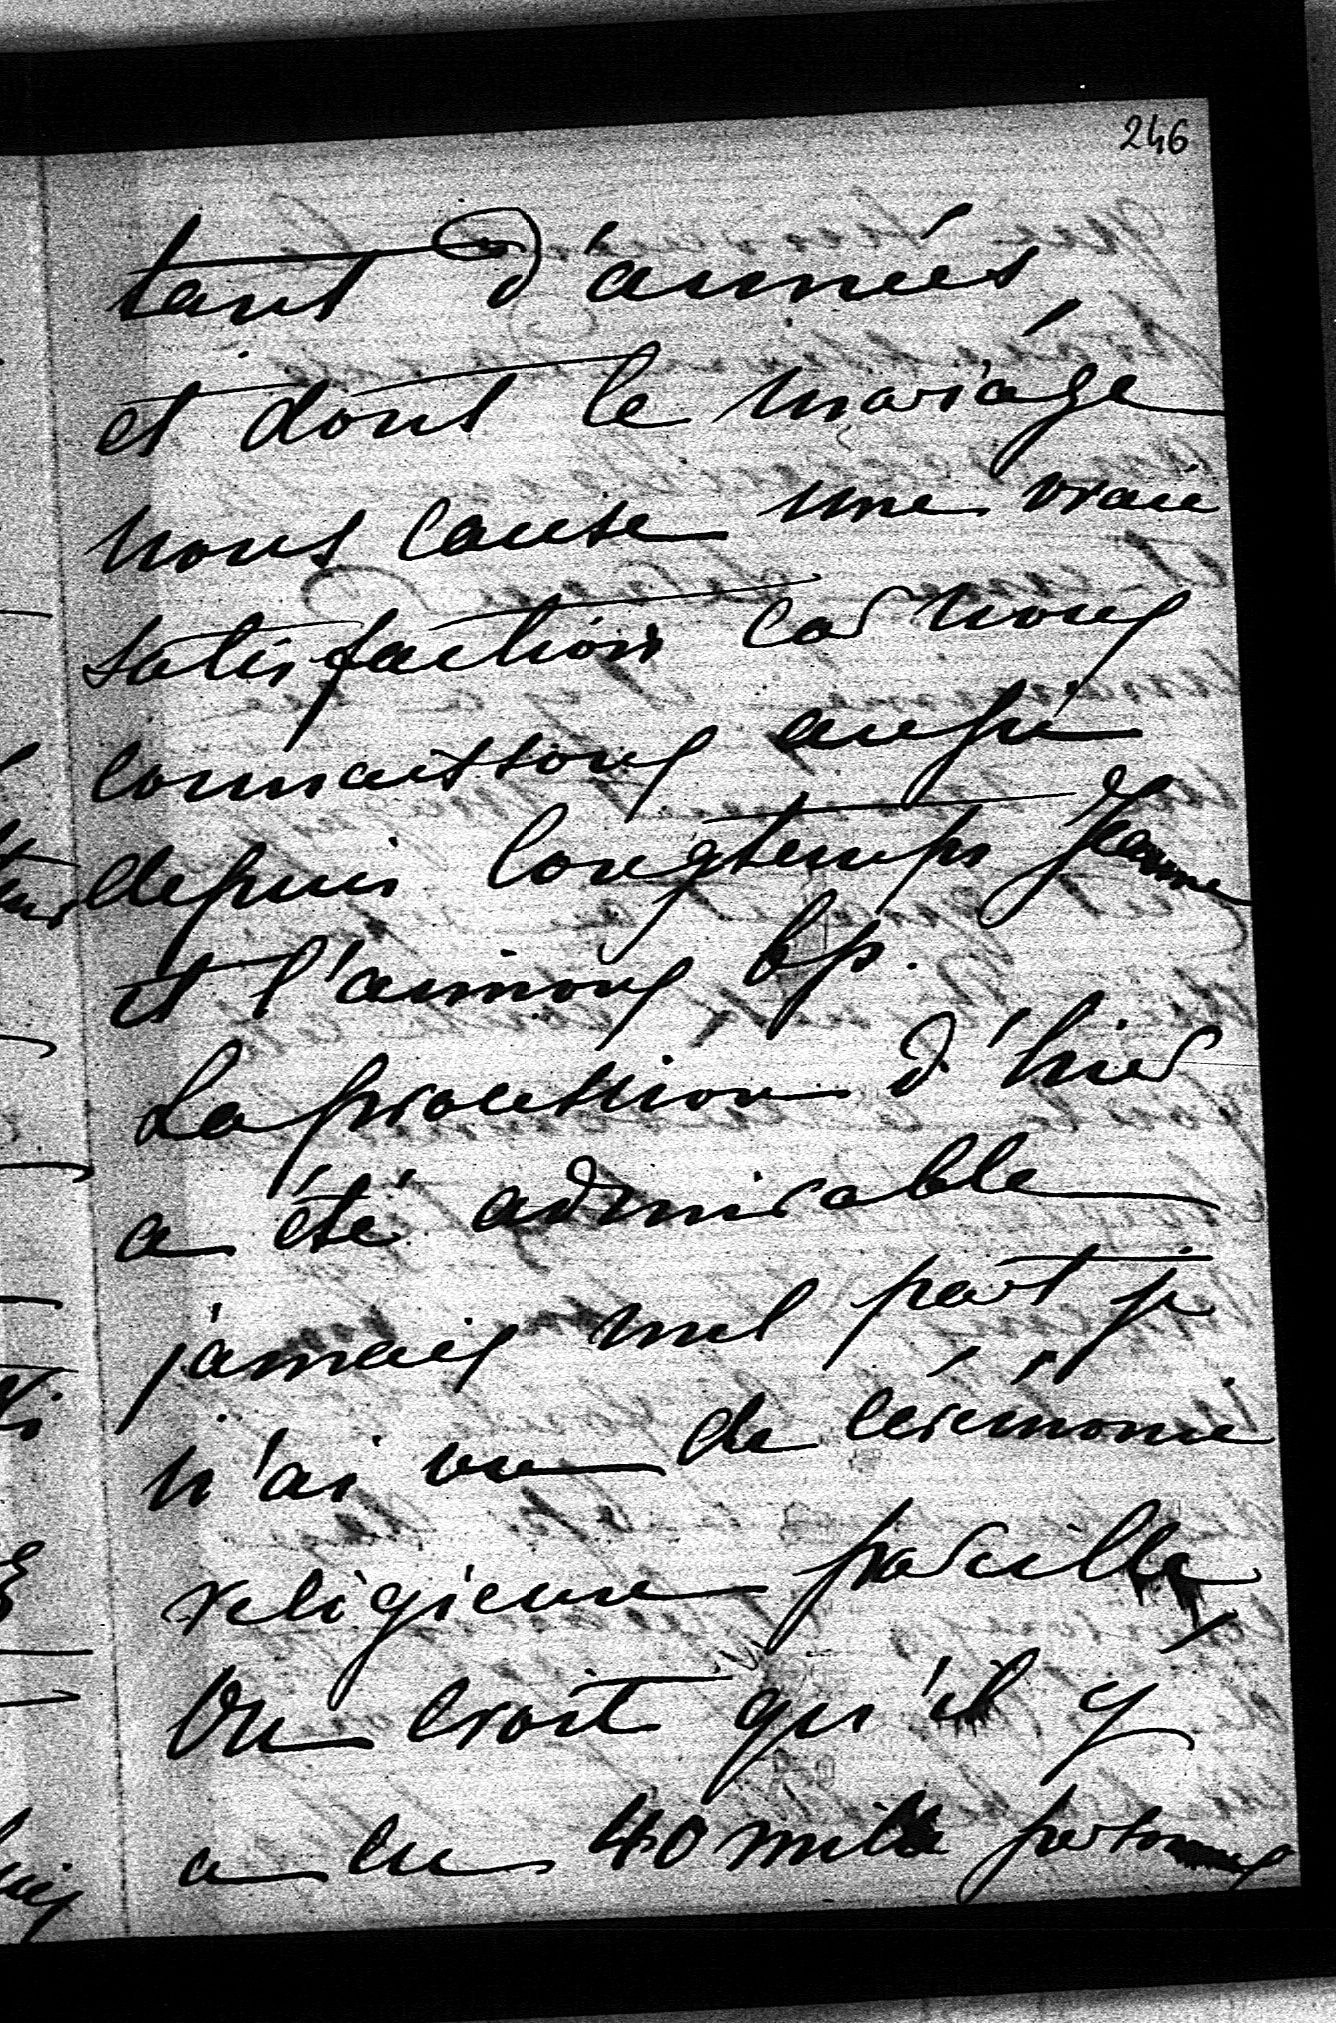 246
tant d'années,
et dont le mariage
nous cause une vraie
satisfaction car nous
connaissons aussi
depuis longtemps Jeanne
et l'aimons bp.
La procession d'hier
a été admirable
jamais nul part je
n'ai vu de cérémonie
religieuse pareille,
On croit qu'il y
a eu 40 mille personnes